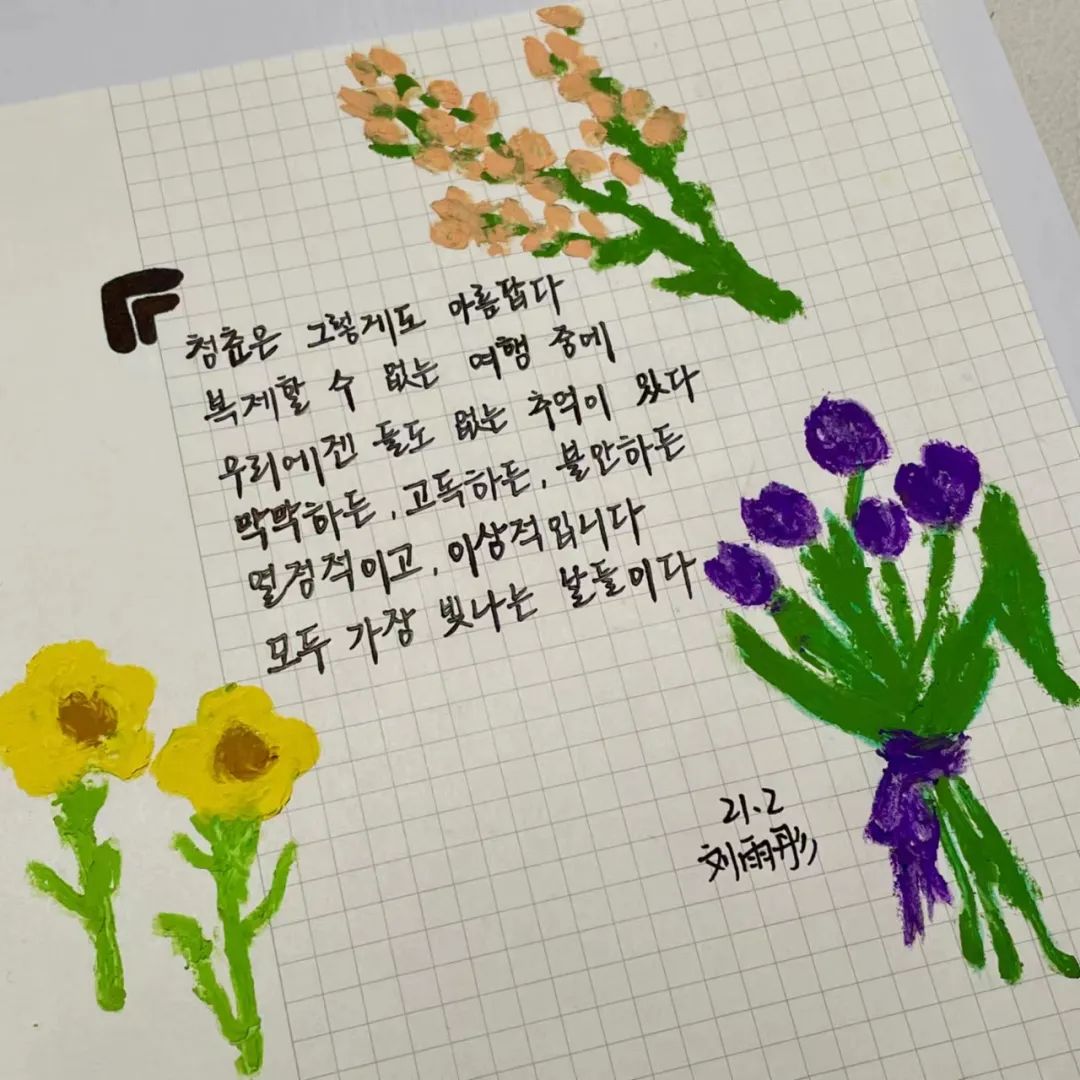 청춘은 그렇게도 아름답다
복제할 수 없는 여행 중에
우리에겐 둘도 없는 추억이 있다
막막하든, 고독하든, 불안하든
열정적이고, 이상적입니다
모두 가장 빛나는 날들이다
21.2
刘雨彤